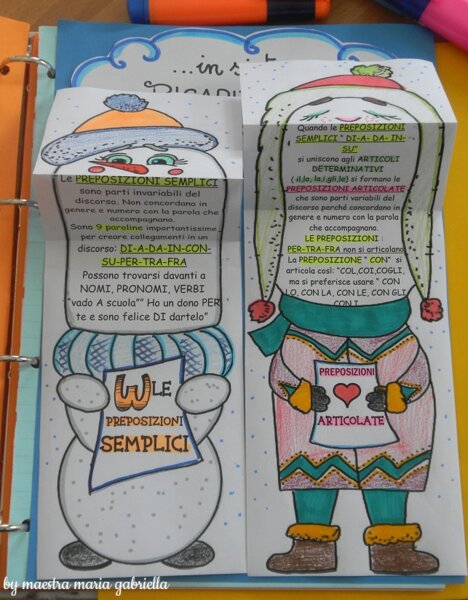 ...in si
RICAPI
Le PREPOSIZIONI SEMPLICI
sono parti invariabili del
discorso. Non concordano in
genere e numero con la parola che
accompagnano.
Sono 9 paroline importantissime
per creare collegamenti in un
discorso: DI-A-DA-IN-CON-
SU-PER-TRA-FRA
Possono trovarsi davanti a
NOMI, PRONOMI, VERBI
"vado A scuola"" Ho un dono PER
te e sono felice DI dartelo"
W LE
PREPOSIZIONI
SEMPLICI
Quando le PREPOSIZIONI
SEMPLICI " DI-A- DA-IN-
SU"
si uniscono agli ARTICOLI
DETERMINATIVI
( il,lo, la,i,gli,le) si formano le
PREPOSIZIONI ARTICOLATE
che sono parti variabili del
discorso perché concordano in
genere e numero con la parola
che accompagnano.
LE PREPOSIZIONI
PER-TRA-FRA non si articolano
La PREPOSIZIONE "CON" si
articola così: "COL,COI,COGLI,
ma si preferisce usare " CON
LO, CON LA, CON LE, CON GLI
CON I
PREPOSIZIONI
ARTICOLATE
by maestra maria gabriella